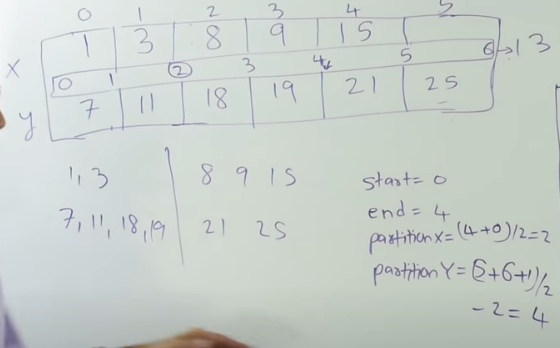 0 1 2 3 4 5
x 1 3 8 9 15
0 1 2 3 4 5 6 → 13
y 7 11 18 19 21 25
1, 3 8 9 15
7, 11, 18, 19 21 25
start = 0
end = 4
partitionX = (4+0)/2 = 2
partitionY = (5+6+1)/2
-2 = 4